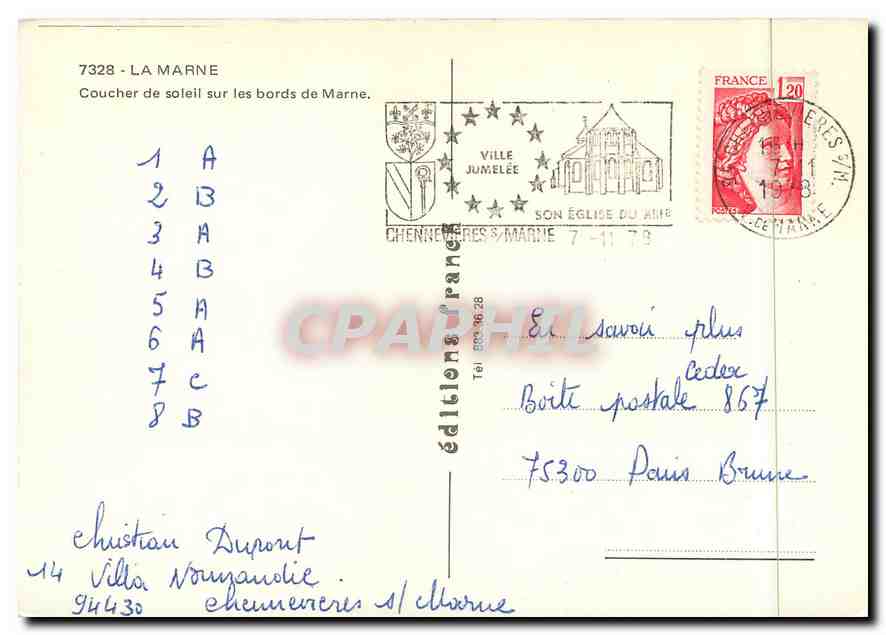 7328 - LA MARNE
Coucher de soleil sur les bords de Marne.
1 A
2 B
3 A
4 B
5 A
6 A
7 C
8 B
Christian Dupont
14 Villa Normandie.
94430 Chennevieres s/ Marne
VILLE
JUMELÉE
SON ÉGLISE DU XIIIe
CHENNEVIÈRES S/MARNE 7 -11 78
FRANCE 1,20
POSTES
1978
éditions franck
Tél 883.36.28
CPAPHIL
En savoir plus
Cedex
Boite postale 867
75300 Paris Brune